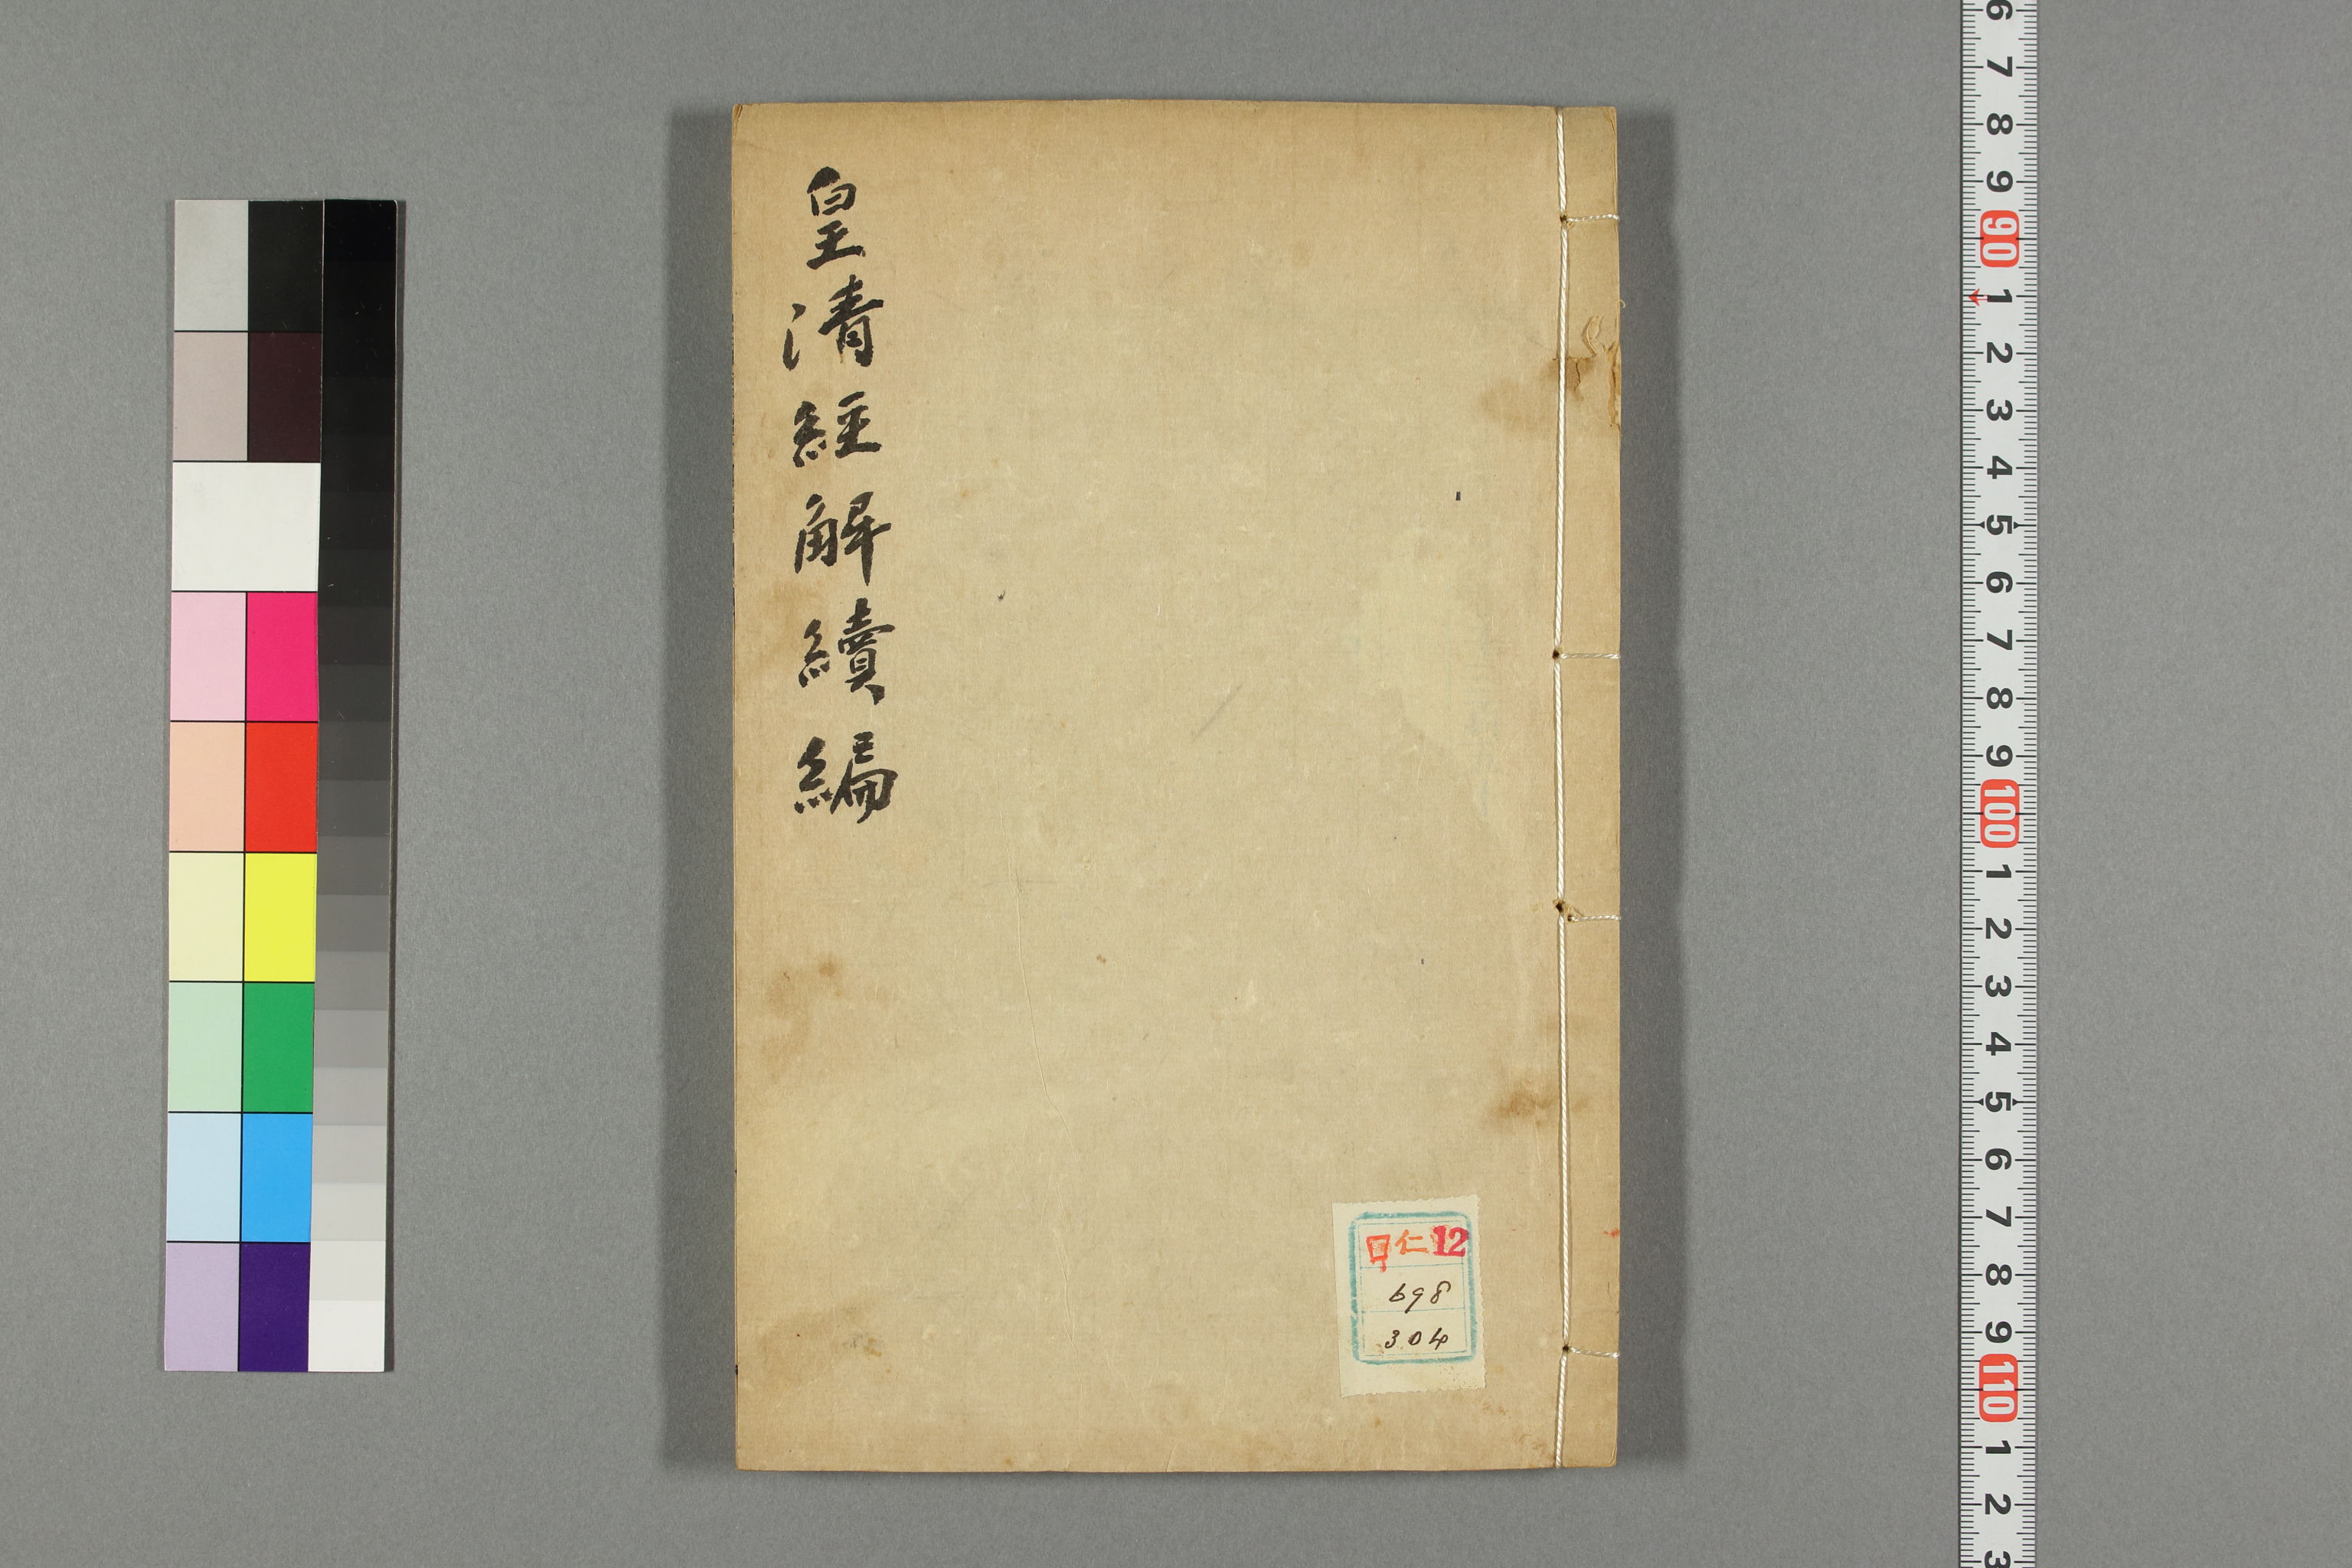 皇清經解續編
口仁12
698
304
6
7
8
9
90
1
2
3
4
5
6
7
8
9
100
1
2
3
4
5
6
7
8
9
110
1
2
3